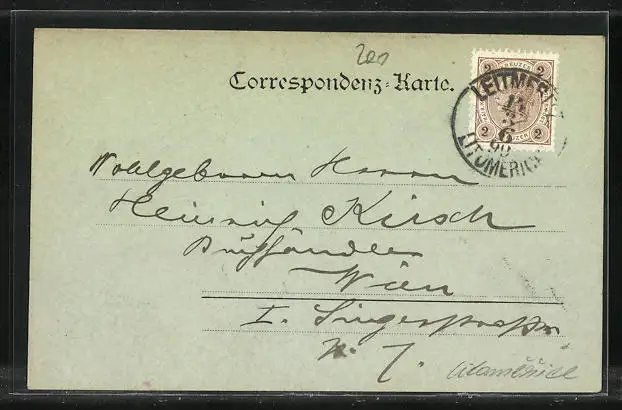 200
Correspondenz-Karte.
2 KREUZER 2
2 KREUZER 2
LEITMERITZ
LITOMĚŘICE
Wohlgeboren Herrn
Heinrich Kirsch
Buchhändler
Wien
I. Singerstrasse
N. 7.
Litoměřice